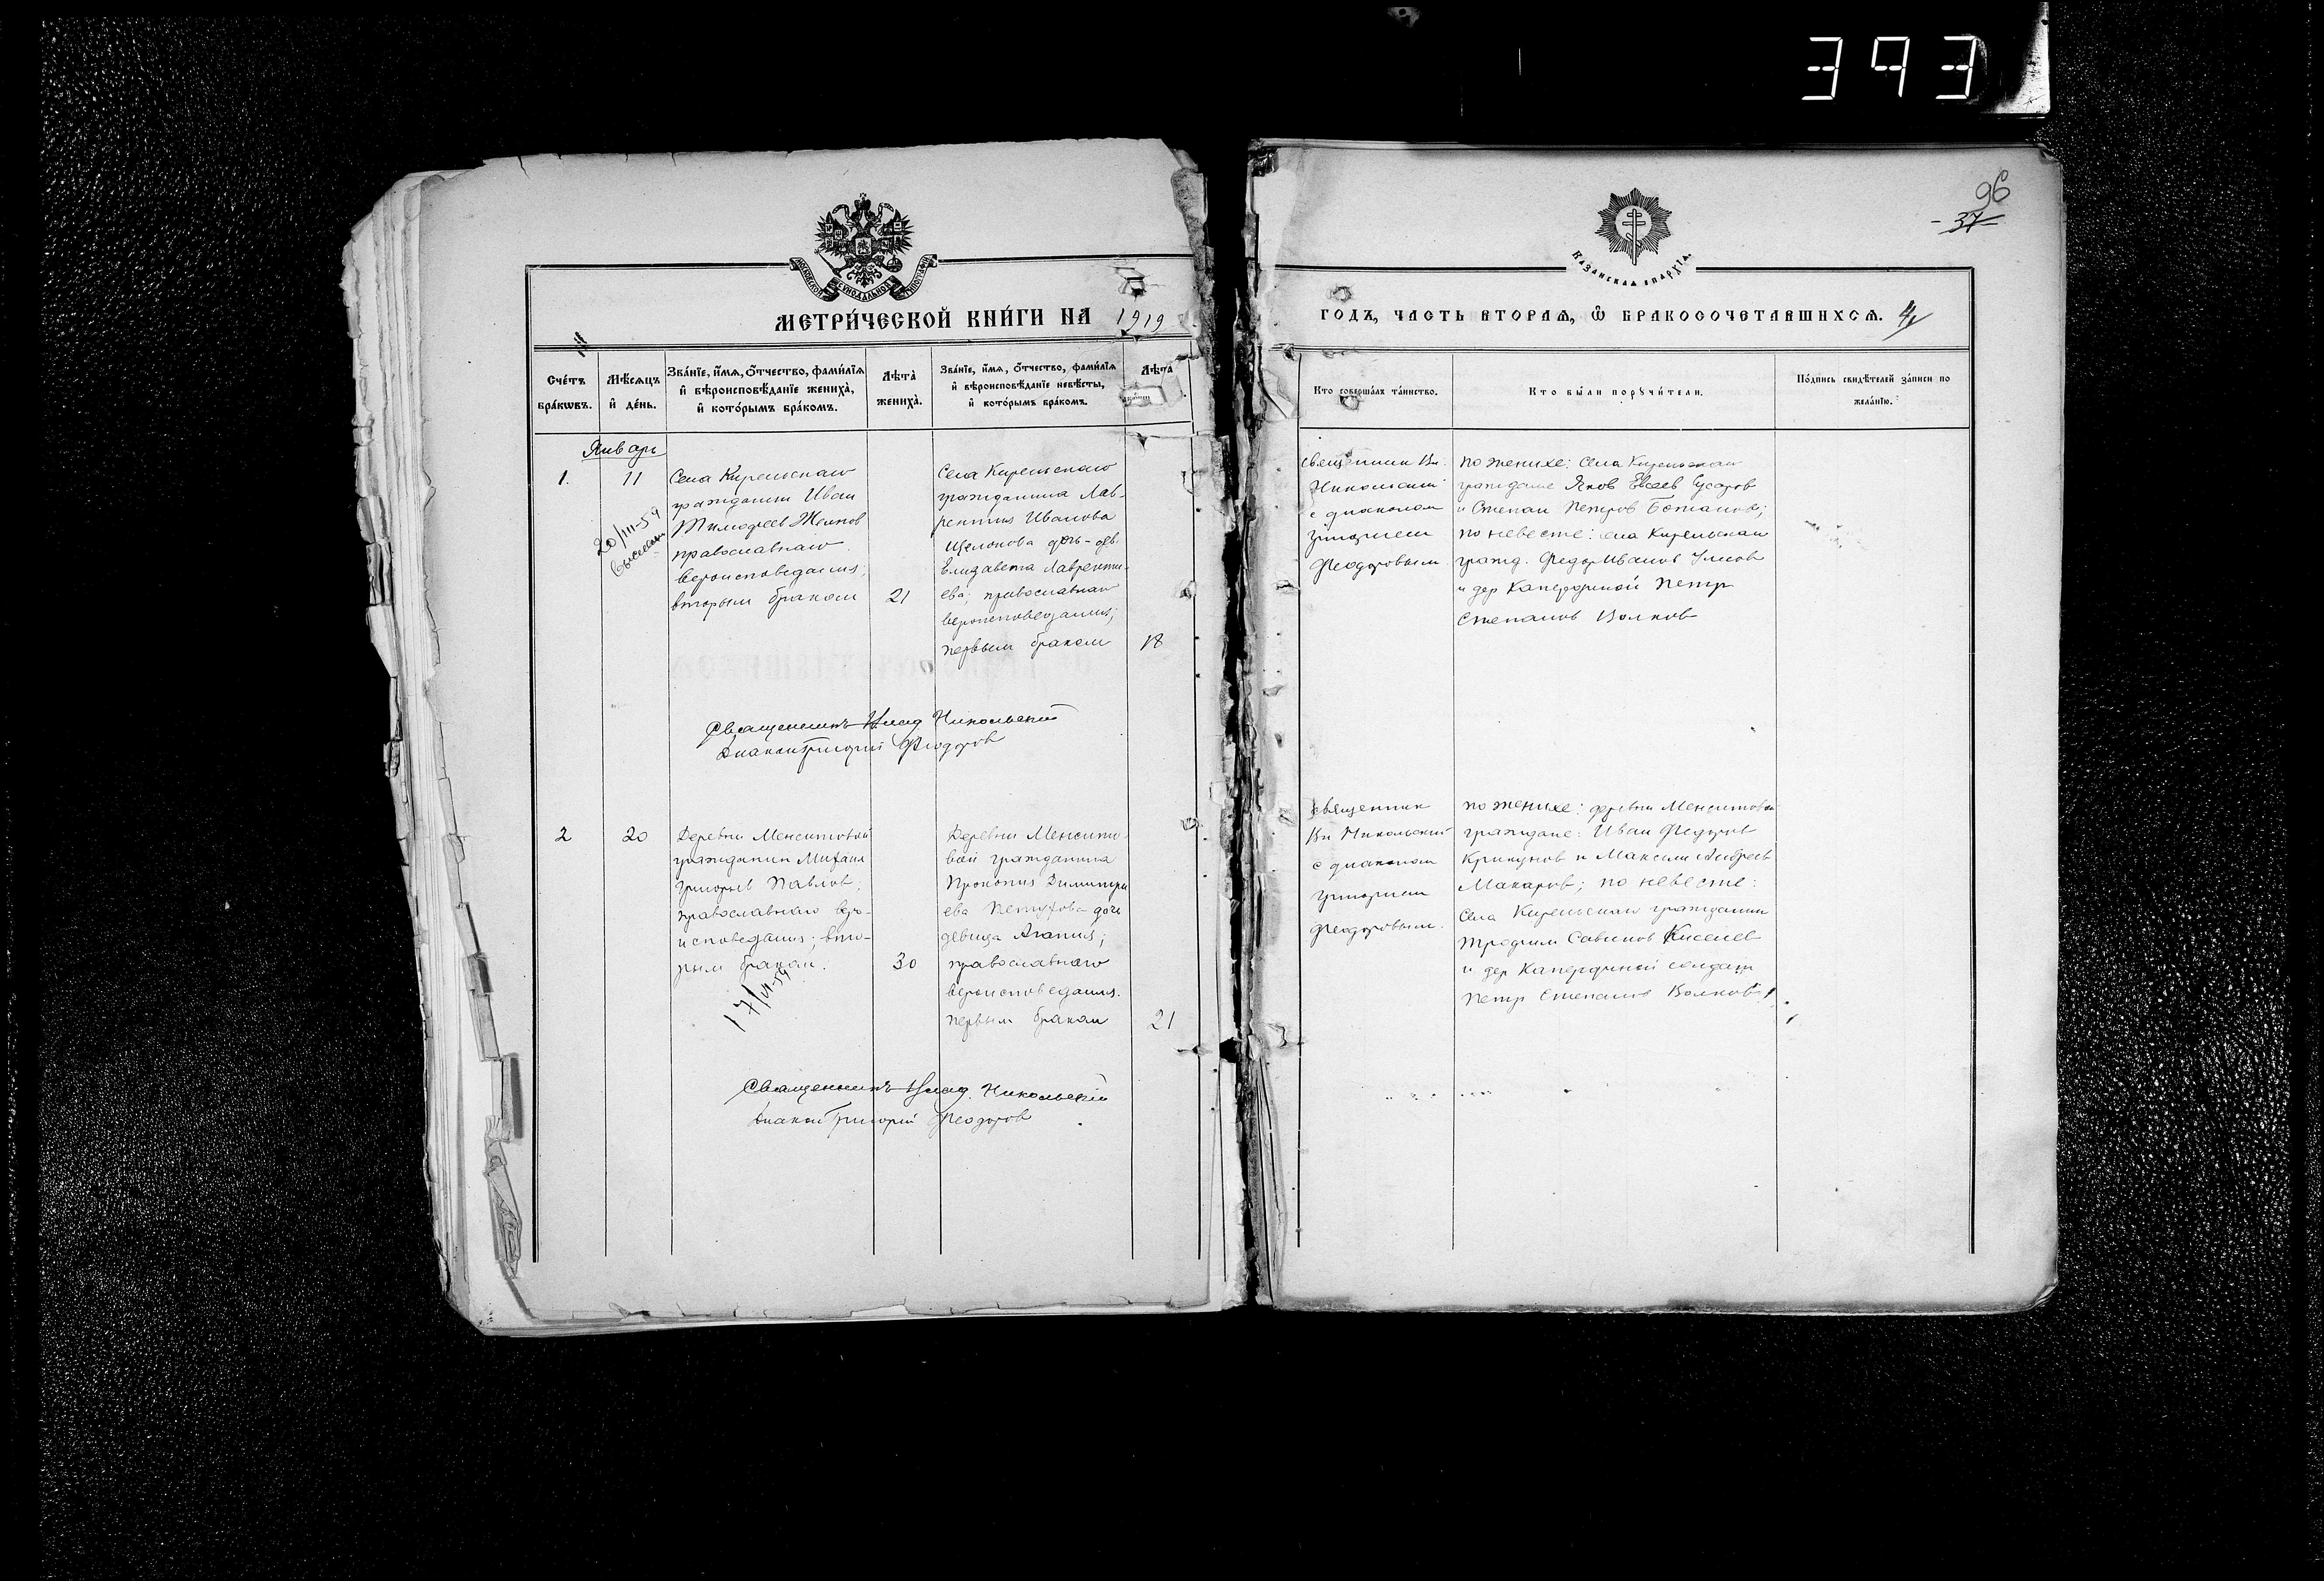 393
96
37
МОСКОВСКОЙ СѴНОДАЛЬНОЙ ТИПОГРАФІИ
КАЗАНСКАѦ ЕПАРХІѦ.
МЕТРИ́ЧЕСКОЙ КНИ́ГИ НА 1919
ГОДЪ, ЧАСТЬ ВТОРАѦ, Ѿ БРАКОСОЧЕТАВШИХСѦ.
Сче́тъ бра́кѡвъ.
Мѣ́сѧцъ и҆ де́нь.
Зва́нїе, и҆́мѧ, ѻ҆́тчество, фами́лїѧ
и҆ вѣроисповѣ́данїе жениха̀,
и҆ кото́рымъ бра́комъ.
Лѣта̀ жениха̀.
Зва́нїе, и҆́мѧ, ѻ҆́тчество, фами́лїѧ
и҆ вѣроисповѣ́данїе невѣ́сты,
и҆ кото́рымъ бра́комъ.
Лѣта̀
Кто соверша́лъ та́инство.
Кто бы́ли порꙋчи́тели.
По́дпись свидѣ́телей за́писи по
жела́нїю.
Январь
1.
11
20/III-54
Села Кирельскаго
гражданин Иван
Тимофеев
православнаго
вероисповедания;
вторым браком
21
Села Кирельскаго
гражданина Лав-
рентия Иванова
дочь-дев.
Елизавета Лавренти-
ева; православнаго
вероисповедания;
первым браком
18
Священник Вл.
Никольский
с диаконом
Григорием
Феодоровым.
по женихе: села Кирельскаго
граждане Яков Евсеев
и Степан Петров
по невесте: села Кирельскаго
гражд. Федор Иванов
и дер. Петр
Степанов Волков
Священникъ Влад. Никольский
Диакон Григорий Феодоров
2
20
Деревни Менситовой
гражданин Михаил
Григорьев Павлов;
православнаго веро-
исповедания; вто-
рым браком.
30
17/VI-54
Деревни Менсито-
вой гражданина
Прокопия Димитри
ева Петухова дочь
девица Агапия;
православнаго
вероисповедания.
первым браком
21
Священник
Вл. Никольский
с диаконом
Григорием
Феодоровым.
по женихе: деревни Менситовой
граждане: Иван Федоров
Крикунов и Максим Андреев
Макаров; по невесте:
села Кирельскаго гражданин
Трофим Савинов Киселев
и дер. солдат
Петр Степанов Волков
Священникъ Влад. Никольский
Диакон Григорий Феодоров